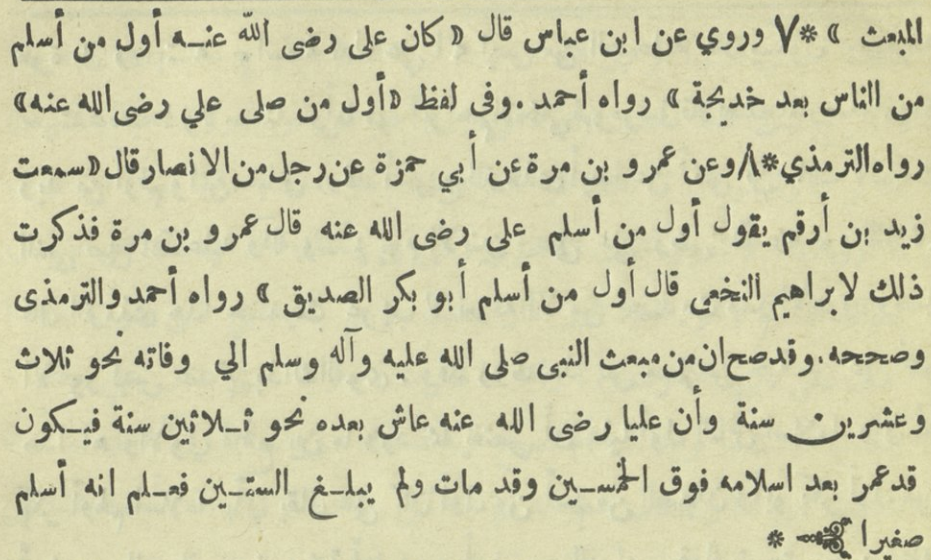 المبعث » * ٧ وروي عن ابن عباس قال « كان على رضى الله عنـه أول من أسلم
من الناس بعد خديجة » رواه أحمد . وفى لفظ « أول من صلى علي رضى الله عنه »
رواه الترمذي * ٨/ وعن عمرو بن مرة عن أبي حمزة عن رجل من الانصار قال « سمعت
زيد بن أرقم يقول أول من أسلم على رضى الله عنه قال عمرو بن مرة فذكرت
ذلك لابراهيم النخعى قال أول من أسلم أبو بكر الصديق » رواه أحمد والترمذى
وصححه . وقد صح ان من مبعث النبى صلى الله عليه وآله وسلم الي وفاته نحو ثلاث
وعشرين سنة وأن عليا رضى الله عنه عاش بعده نحو ثـلاثين سنة فيـكون
قد عمر بعد اسلامه فوق الخمسـين وقد مات ولم يبلـغ الستـين فعـلم انه أسلم
صغيرا *